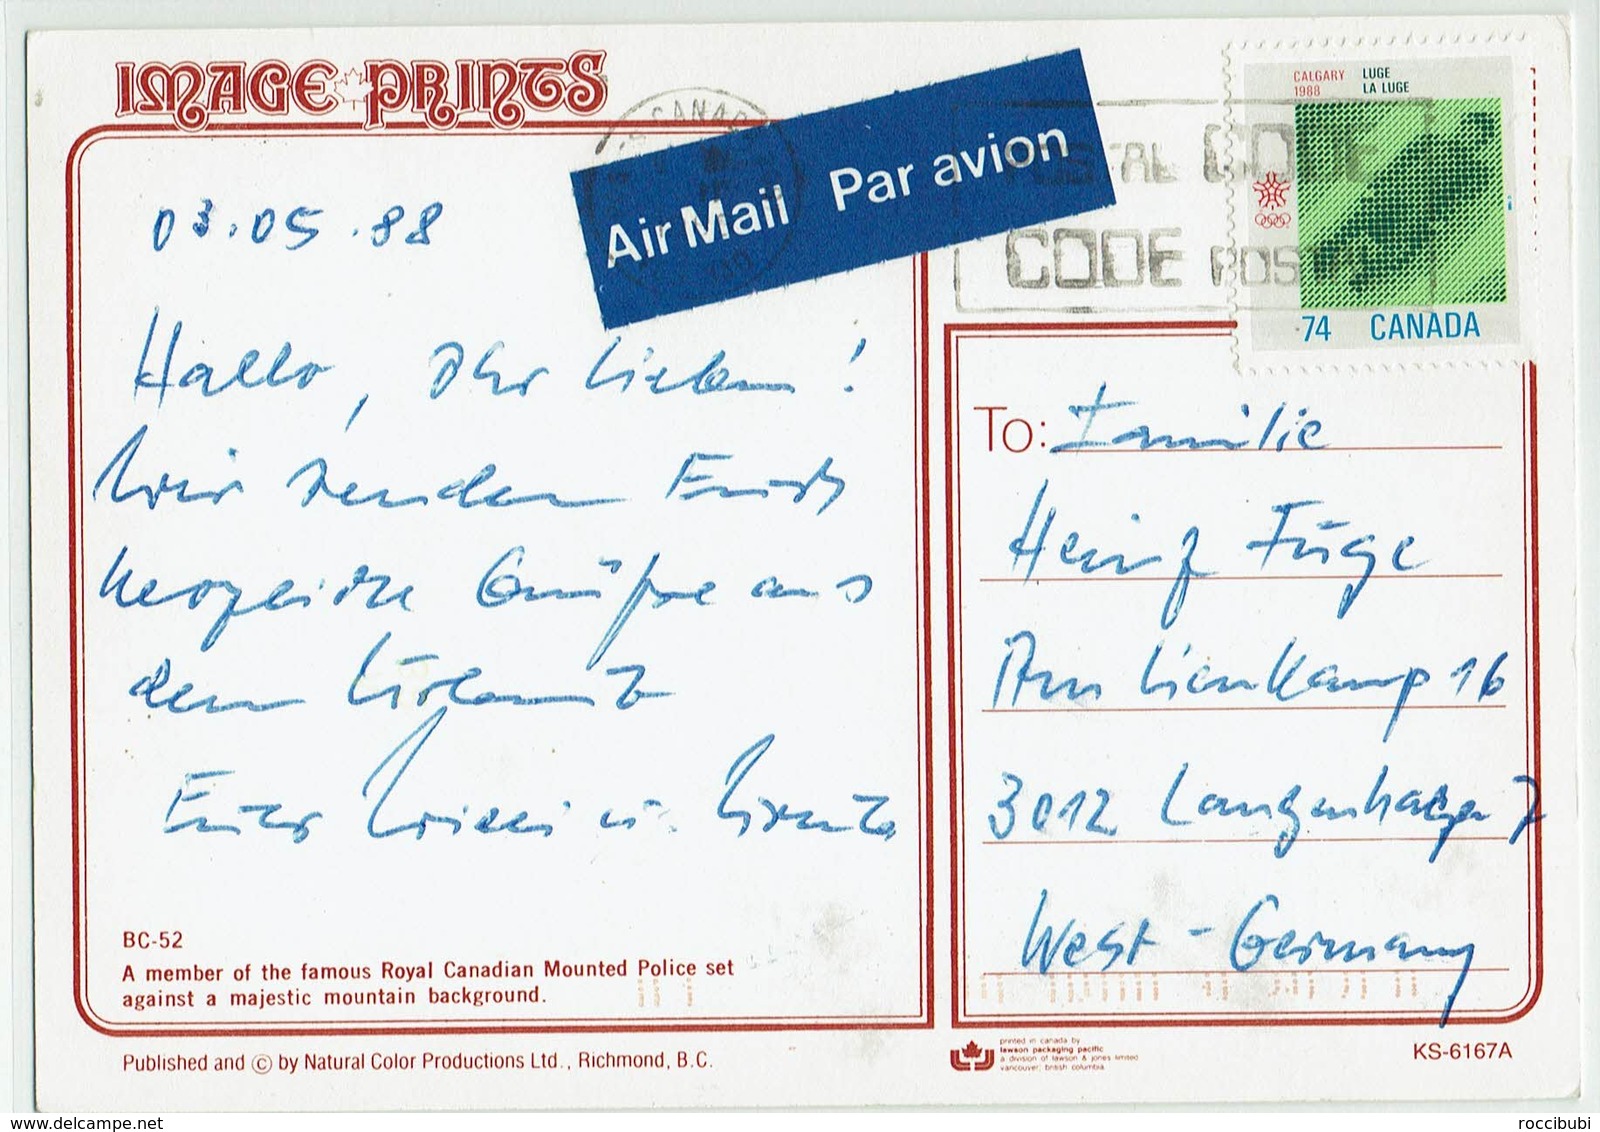 IMAGE PRINTS
Air Mail Par avion
CANADA
POSTAL CODE
CODE POSTAL
CALGARY
1988
LUGE
LA LUGE
74 CANADA
03.05.88
Hallo, Ihr Lieben!
Wir senden Euch
herzliche Grüße aus
dem Urlaub
Eure Willi u.
To: Familie
Heinz Füge
Am Lienkamp 16
3012 Langenhagen 7
West-Germany
BC-52
A member of the famous Royal Canadian Mounted Police set
against a majestic mountain background.
Published and © by Natural Color Productions Ltd., Richmond, B.C.
printed in canada by
lawson packaging pacific
a division of lawson & jones limited
vancouver, british columbia
KS-6167A
www.delcampe.net
roccibubi